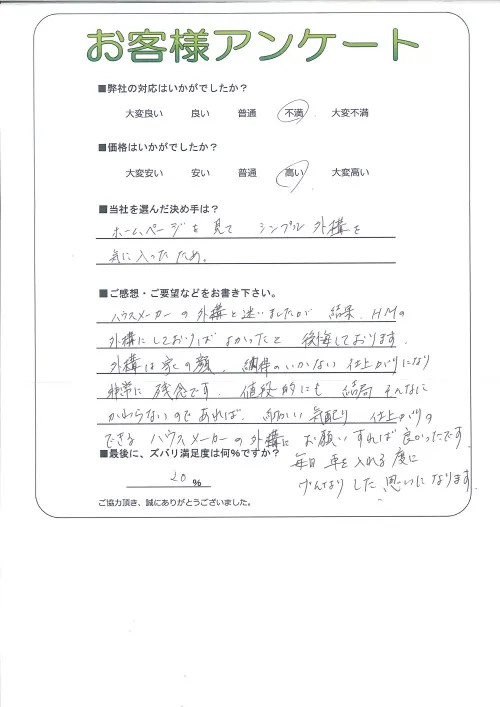 お客様アンケート
■弊社の対応はいかがでしたか？
大変良い 良い 普通 不満 大変不満
■価格はいかがでしたか？
大変安い 安い 普通 高い 大変高い
■当社を選んだ決め手は？
ホームページを見て シンプル外構を
気に入ったため。
■ご感想・ご要望などをお書き下さい。
ハウスメーカーの外構と迷いましたが 結果、HMの
外構にしておけば よかったと 後悔しております。
外構は家の顔。納得のいかない仕上がりになり
非常に残念です。値段的にも 結局 そんなに
かわらないのであれば、細かい気配り 仕上がりの
できる ハウスメーカーの外構に お願いすれば良かったです。
毎日 車を入れる度に
げんなりした思いになります。
■最後に、ズバリ満足度は何％ですか？
20 %
ご協力頂き、誠にありがとうございました。